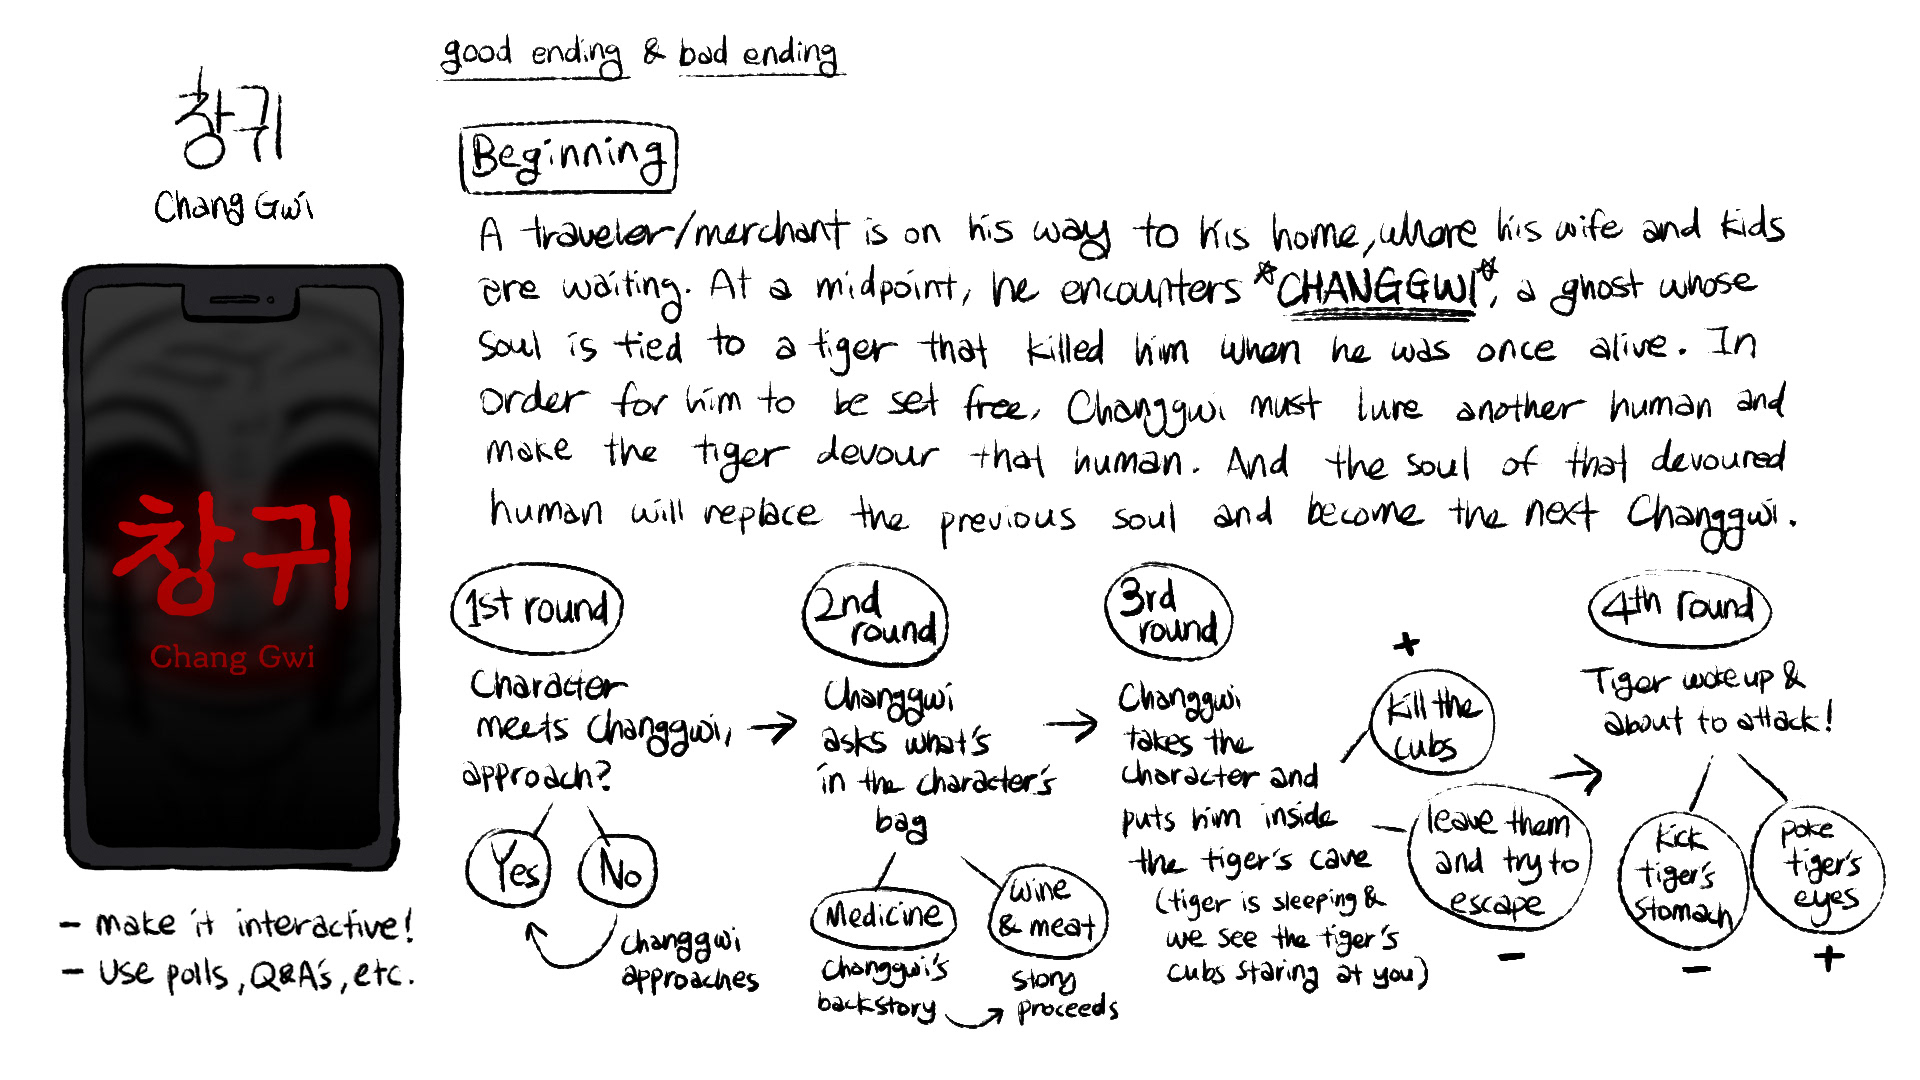 good ending & bad ending
창귀
Chang Gwi
창귀
Chang Gwi
- make it interactive!
- use polls, Q&A's, etc.
Beginning
A traveler/merchant is on his way to his home, where his wife and kids
are waiting. At a midpoint, he encounters *CHANGGWI*, a ghost whose
soul is tied to a tiger that killed him when he was once alive. In
order for him to be set free, Changgwi must lure another human and
make the tiger devour that human. And the soul of that devoured
human will replace the previous soul and become the next Changgwi.
1st round
Character
meets Changgwi,
approach?
Yes
No
Changgwi
approaches
2nd
round
Changgwi
asks what's
in the character's
bag
Medicine
Changgwi's
backstory
wine
& meat
story
proceeds
3rd
round
Changgwi
takes the
character and
puts him inside
the tiger's cave
(tiger is sleeping &
we see the tiger's
cubs staring at you)
+
kill the
cubs
leave them
and try to
escape
-
4th round
Tiger woke up &
about to attack!
kick
tiger's
stomach
-
poke
tiger's
eyes
+